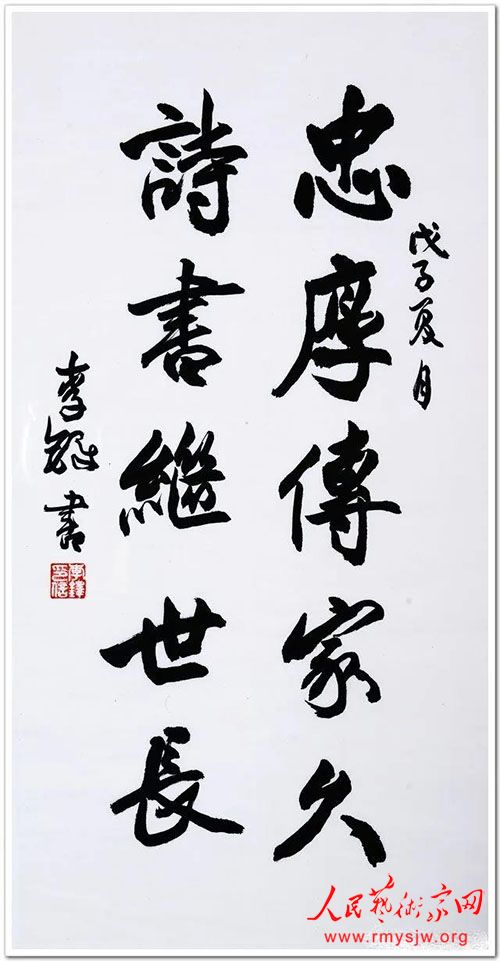 戊子夏月
忠厚傳家久
詩書繼世長
李鐸書
李鐸
印信
人民藝術家网
www.rmysjw.org